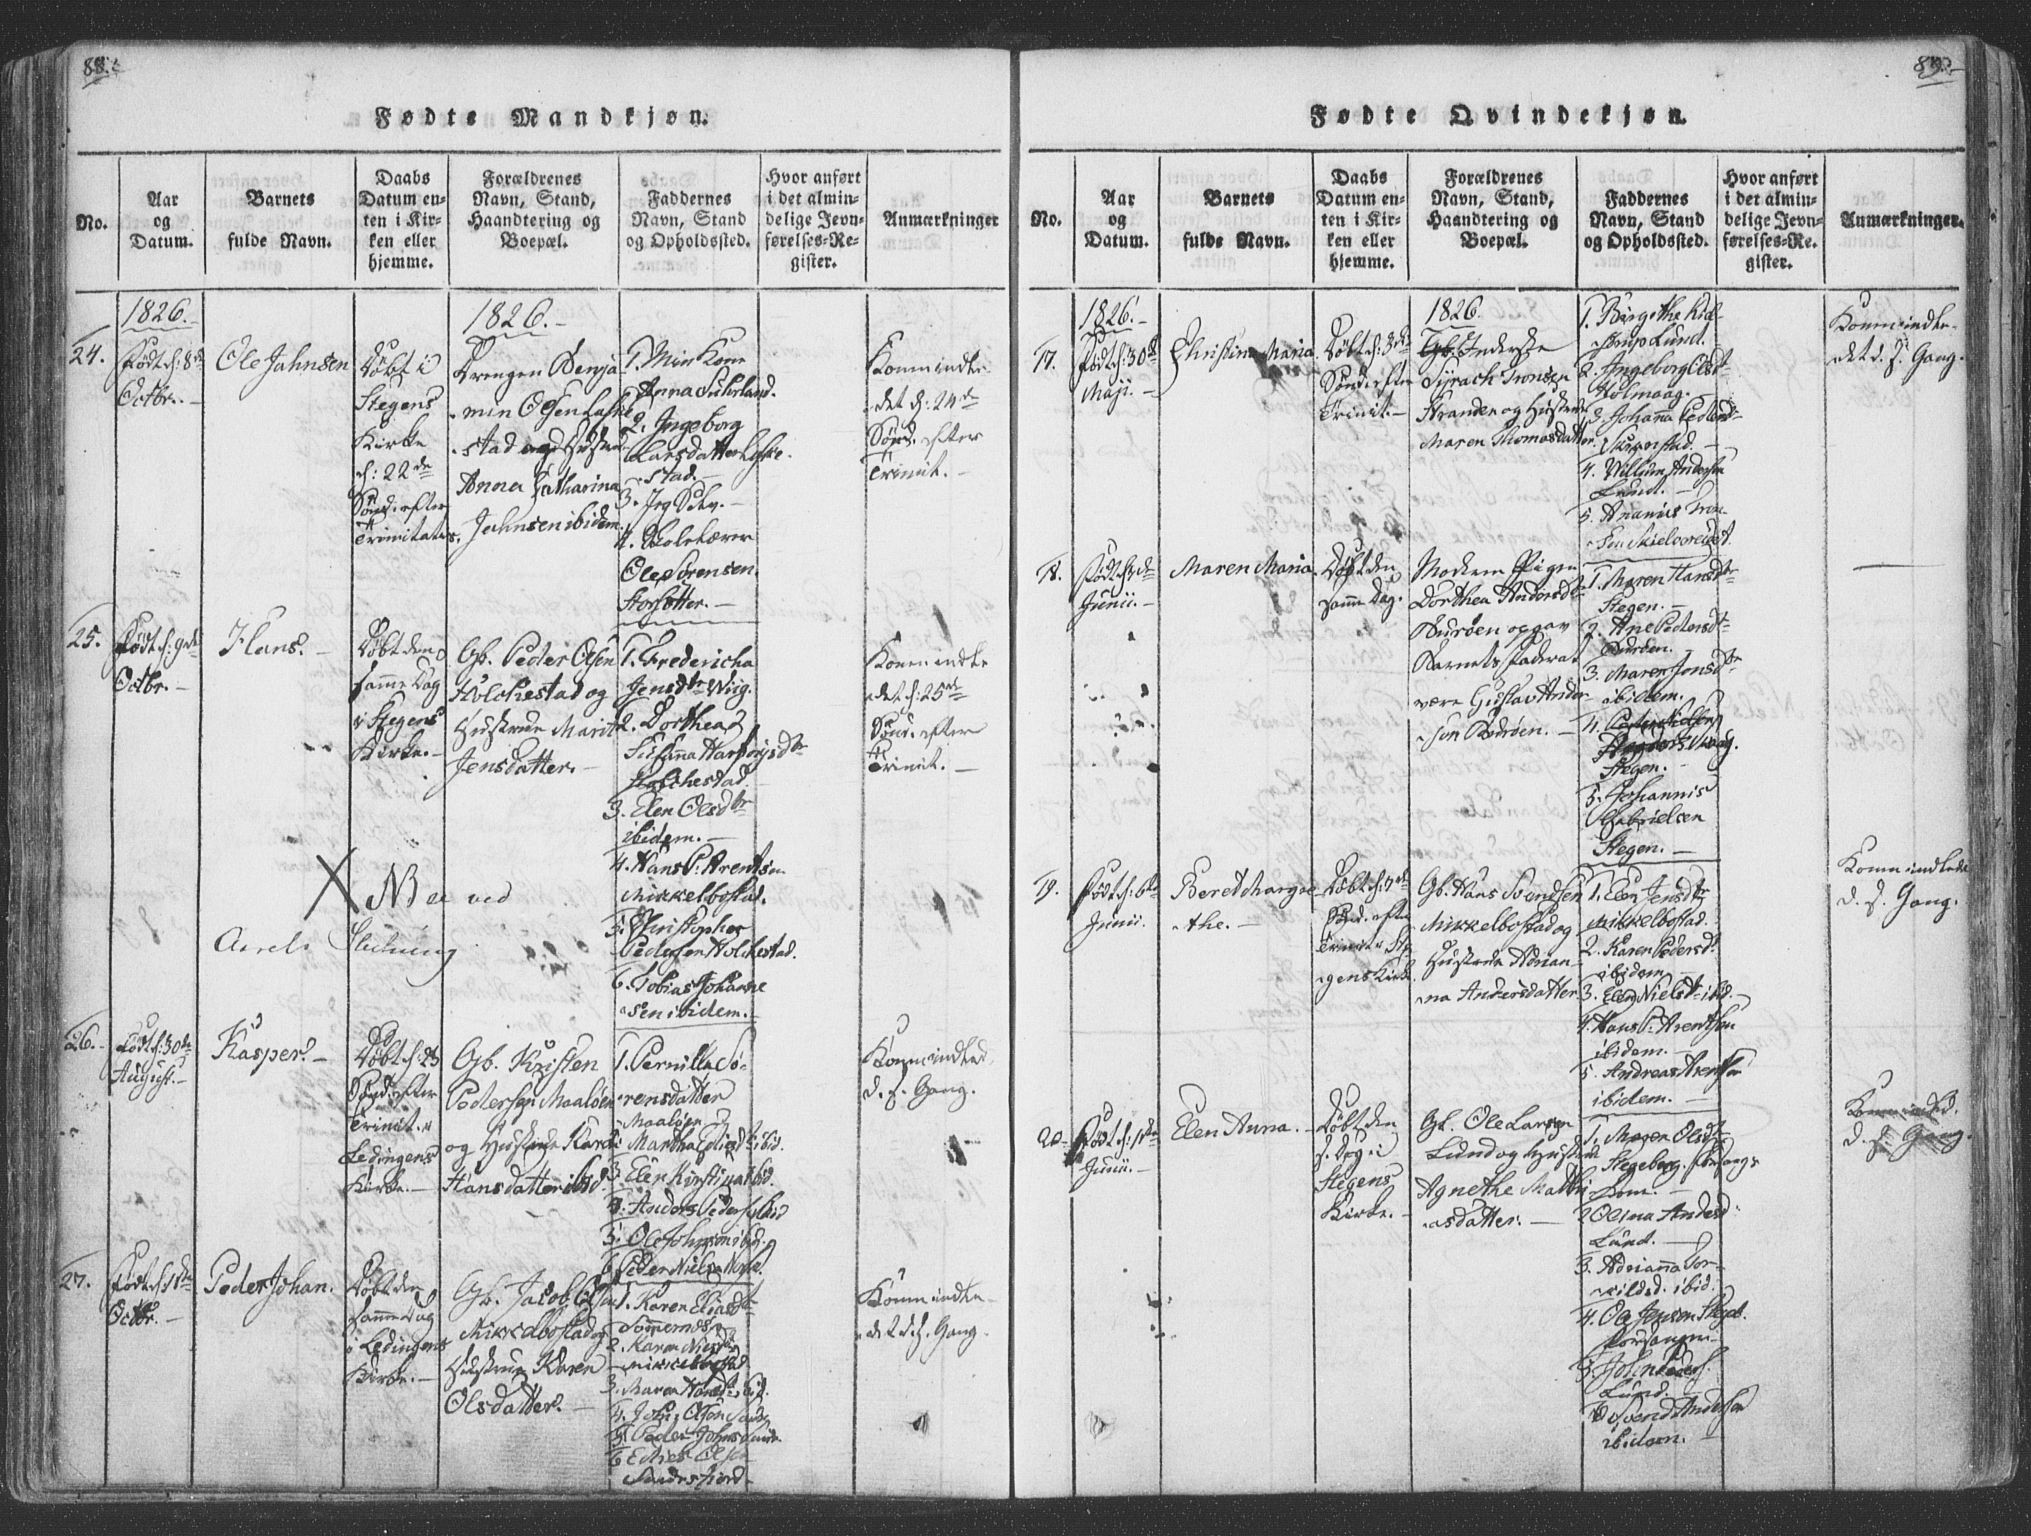 88.
Fødte Mandkjøn.
No.
Aar
og
Datum.
Barnets
fulde Navn.
Daabs
Datum en-
ten i Kir-
ken eller
hjemme.
Forældrenes
Navn, Stand,
Haandtering og
Boepæl.
Faddernes
Navn, Stand
og Opholdssted.
Hvor anført
i det almin-
delige Jevn-
førelses-Re-
gister.
Anmærkninger
1826.
1826.
24.
Født d: 8de
Octbr.
Ole Jahnsen
Døbt i
Stegens
Kirke
d: 22de
Sønd. efter
Trinitatis.
Drengen Benja
min Olsen Laske
stad og
Anna Catharina
Jahnsen ibidem.
1. Min Kone
Anna Suhrland.
2. Ingeborg
Larsdatter Laske
stad.
3. Jeg Selv.
4. Skolelærer
Ole Sørensen
Storsætter.
Kom indte
det d: 24de
Sønd. efter
Trinit.
25.
Født d: 9de
Octbr.
Hans.
Døbt den
samme Dag
i Stegens
Kirke.
Gb. Peder Olsen
Holchestad og
Hustrue Marit
Jensdatter.
1. Fredericha
Jensdtr Wiig.
2. Dorthea
Susanna Hartvigsdtr
Holchestad
3. Elen Olsdtr
ibidem.
4. Hans P. Arentsen
Mikkelbostad.
5. Christopher
Pedersen Holchestad.
6. Tobias Johanne
sen ibidem.
Kom indte
det d: 25de
Sønd. efter
Trinit.
X NB ved
26.
Født d: 30te
August.
Kasper.
Døbt d: 23
Sønd. efter
Trinit. i
Ledingens
Kirke.
Gb. Kristen
Pedersen Maaløen
og Hustrue Karen
Hansdatter ibid.
1. Pernilla Sø-
rensdatter
Maaløen
2. Martha Eliasdtr ibid.
3. Elen Kirstina ibid.
4. Anders Pedersen ibid
5. Ole Johnsen ibid.
6. Peder Nielsen
Kom indted
d. s. Gang.
27.
Født d: 1ste
Octbr.
Peder Johan.
Døbt den
samme Dag
i Ledingens
Kirke.
Gb. Jacob Olsen
Mikkelbostad og
Hustrue Karen
Olsdatter.
1. Karen Eliasdtr
2. Karen
Mikkelbostad
3. Maren
4. John Olsen
5. Peder Johnsen
6. Olsen
Kom indte
det d. s. Gang.
89.
Fødte Qvindekjøn.
No.
Aar
og
Datum.
Barnets
fulde Navn.
Daabs
Datum en-
ten i Kir-
ken eller
hjemme.
Forældrenes
Navn, Stand,
Haandtering og
Boepæl.
Faddernes
Navn, Stand
og Opholdssted.
Hvor anført
i det almin-
delige Jevn-
førelses-Re-
gister.
Anmærkninger.
1826.
1826.
17.
Født d: 30te
Maji.
Christina Maria
Døbt d: 3die
Sønd. efter
Trinit.
Gb. Inderste
Syrach Tronsen
Stranden og Hustrue
Maren Thomasdatter
1. Birgithe
Lund.
2. Ingeborg Olsdtr
Holmaag.
3. Johanna
4. Willum Andersen
Lund.
5. Ananias Tron
sen
Kom indte
det d. s. Gang.
18.
Født
Junii.
Maren Maria.
Døbt den
samme Dag.
Modren Pigen
Dorthea Andersdtr
Burøen opgav
Barnets Fader at
være Gustav Ander
sen Burøen.
1. Maren Hansdtr
Stegen.
2. Ane Pedersdtr
Burøen.
3. Maren Jonsdtr
ibidem.
4. Peder Nielsen
Stegen.
5. Johannis
Gabrielsen
Stegen.
19.
Født d: 6te
Junii.
Beret Margre
the.
Døbt d: 7de
Sønd. efter
Trinit. i Ste
gens Kirke
Gb. Hans Svendsen
Mikkelbostad og
Hustrue Adrian-
na Andersdatter
1. Elen Jensdtr
Mikkelbostad.
2. Karen Pedersdtr
ibidem
3. Elen Nielsdtr ibid.
4. Hans P. Arentsen
ibidem.
5. Andreas Arentsen
ibidem.
Kom indted
d. s. Gang.
20.
Født d: 11te
Junii.
Elen Anna.
Døbt den
s. Dag i
Stegens
Kirke.
Gb. Ole Larsen
Lund og Hustrue
Agnethe Mathi
asdatter.
1. Maren Olsdtr
Stegeberg Forsang.
Kone.
2. Olina Andersd:
Lund.
3. Adrianna Tor-
kildsd. ibid.
4. Ole Jensen
Forsanger.
5.
Lund.
6. Svend Andersen
ibidem.
Kom indted.
d. s. Gang.